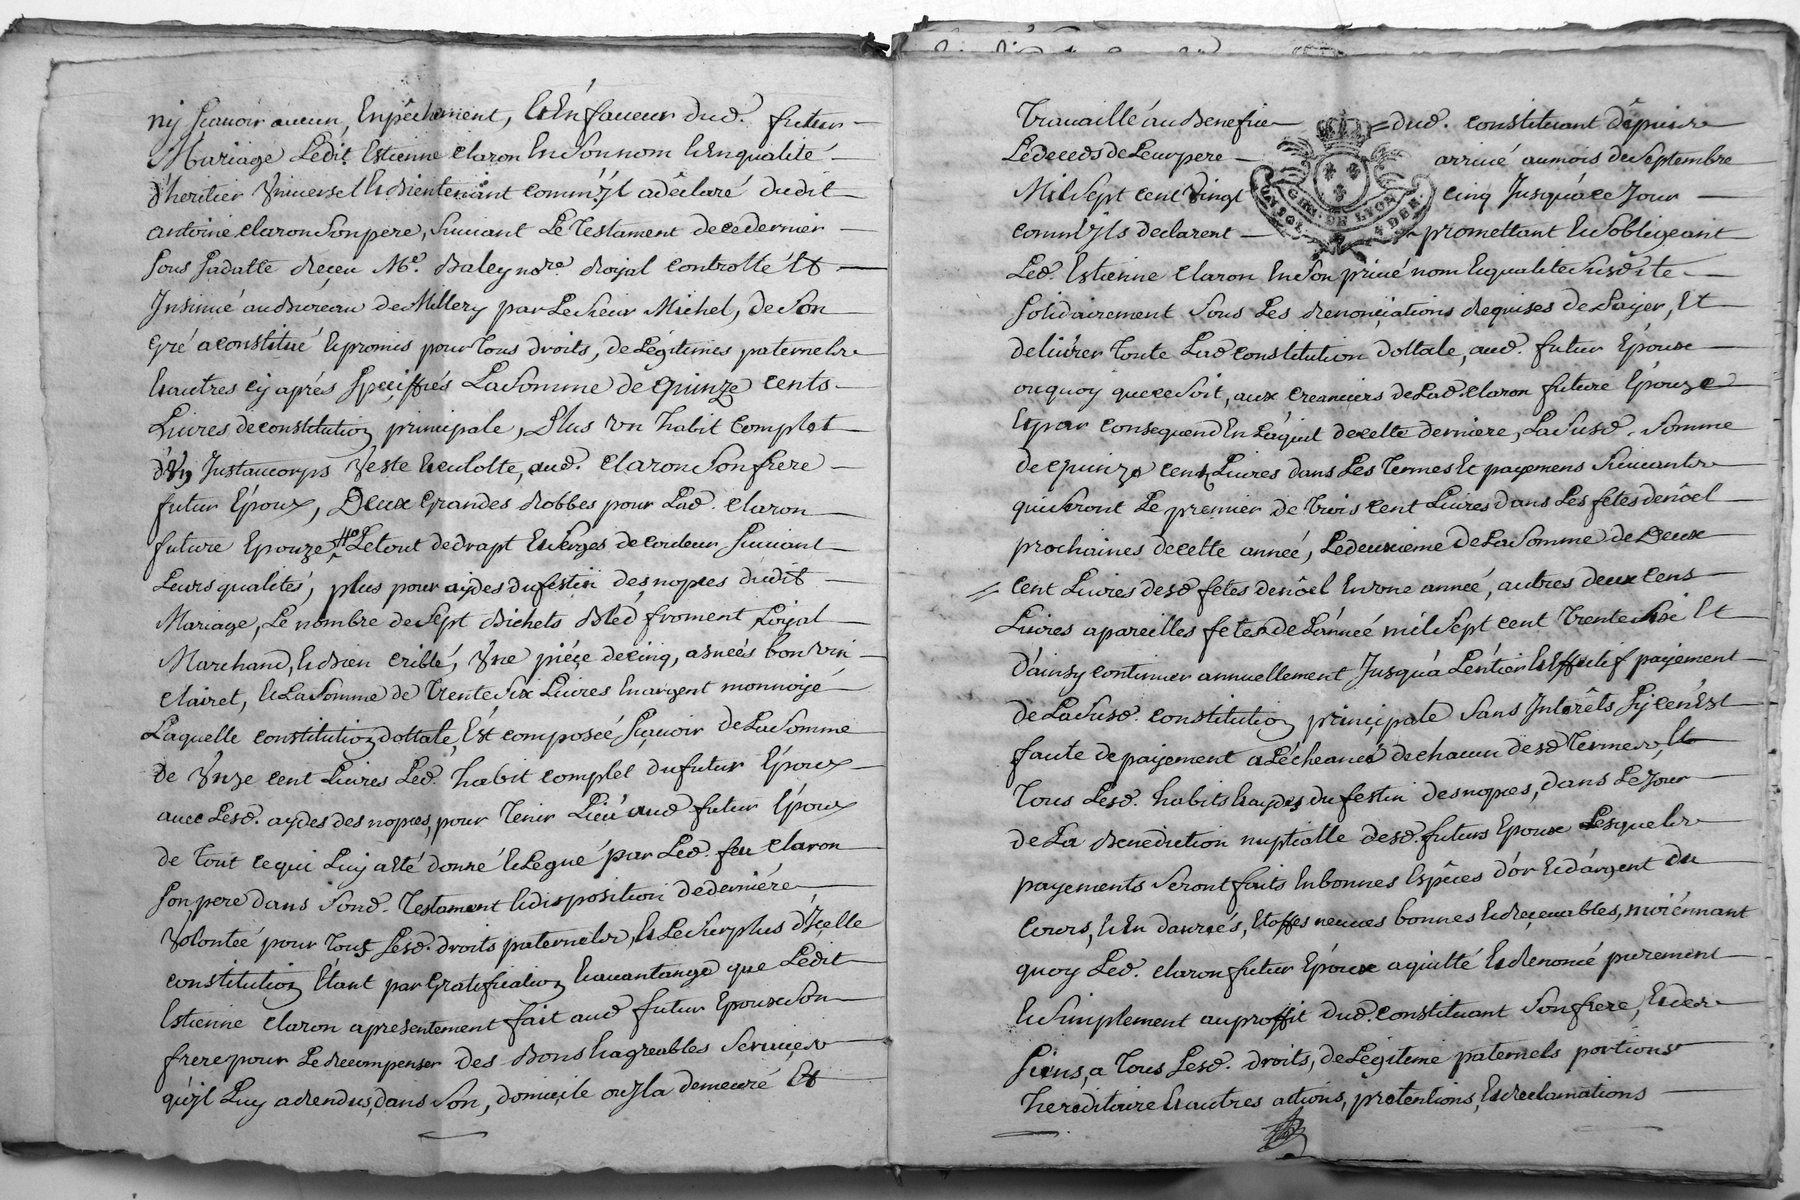 nÿ sçavoir aucun, Enpêchement, Et En faveur dud. futur
Mariage Ledit Estienne Claron En Son nom Et En qualité
d'heritier Vniversel Et Bientenant comm'Jl a déclaré dudit
antoine Claron Son pere, suivant Le Testament de ce dernier
Sous Sa datte Reçeu Me. Baley nore. Royal controllé Et
Jnsinué au Bureau de Millery par Le sieur Michel, de Son
gré a constitué Et promis pour Tous droits, de Légitimes paternels
Et autres cy aprés Speciffiés La Somme de quinze cents
Livres de constitution principale, Plus vn habit complet
d'Vn Justaucorps Veste Et culotte, aud. Claron Son frere
futur Époux, Deux Grandes Robbes pour Lad. Claron
future Epouze Le tout de drapt Et serges de couleur suivant
Leurs qualités, plus pour aydes du festin des nopces dudit
Mariage, Le nombre de Sept Bichets Bled froment, Loyal
Marchand, Et Bien criblé, Vne piéçe de cinq, asnéés bon vin
Clairet, Et La Somme de Trente Six Livres En argent monnoyé
Laquelle constitution dottale, Est composée sçavoir de La Somme
de Vnze cent Livres Led. habit complet du futur Époux
avec Lesd. aydes des nopces, pour Tenir Lieu aud futur Époux
de Tout ce qui Luy a Eté donné Et Legué par Led. feu Claron
Son pere dans Sond. Testament Et disposition de derniére
Volonteé pour Tous Lesd. droits paternels, Et Le Surplus d'Jcelle
constitution Etant par Gratification Et avantange que Ledit
Estienne Claron a presentement fait aud futur Epoux Son
frere pour Le Recompenser des Bons Et agreables Services
qu'Jl Luy a Rendus, dans Son, domicile ou Jl a demeuré Et
Travaillé au Benefice dud. constituant depuis
Le deceds de Leur pere arrivé au mois de Septembre
Mil Sept cent Vingt cinq Jusqu'a ce Jour
comm'Jls declarent promettant Et S'obligeant
GEN. DE LYON
Led. Estienne Claron En Son privé nom Et qualité Susdite
Solidairement Sous Les Renonciations Requises de Payer, Et
delivrer Toute Lad constitution dottale, aud. futur Époux
ou quoy que ce Soit, aux creanciers de Lad. Claron future Épouze
Et par consequend En L'aquit de cette derniere, La Susd. Somme
de quinze cens Livres dans Les Termes Et payemens suivants
qui Seront Le premier de Trois Cent Livres dans Les fetes de nôel
prochaines de cette anneé, Le deuxieme de La Somme de Deux
cent Livres desd fetes de nôel En vne anneé, autres deux cens
Livres a pareilles fetes de L'anneé mil Sept cent Trente Et
d'ainsy continuer annuellement Jusqu'a L'entier Et Effectif payement
de La Susd. constitution principale Sans Jntérêts Sy ce n'Est
faute de payement a L'écheance de chacun desd Termes, Et
Tous Lesd. habits Et aydes du festin des nopces, dans Le Jour
de La Benediction nuptialle desd. futurs Epoux Lesquels
payements Seront faits En bonnes Espêces d'or Et d'argent Du
Cours, Et En danreés, Etoffes neuves bonnes Et Reçevables, moiénnant
quoy Led. Claron futur Époux a quitté Et Renoncé purement
Et Simplement au proffit dud. constituant Son frere, Et des
Siens, a Tous Lesd. droits, de Légitime paternels portions
hereditaire Et autres actions, pretentions, Et Reclamations